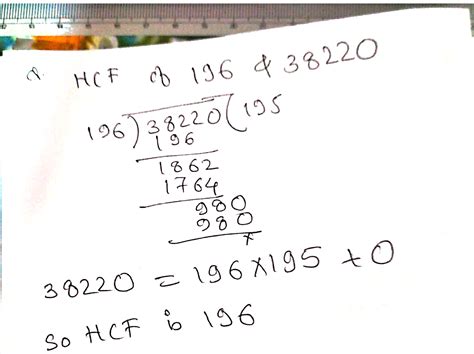 HCF of 196 & 38220
196) 38220 (195
196
1862
1764
980
980
×
38220 = 196×195 + 0
So HCF is 196